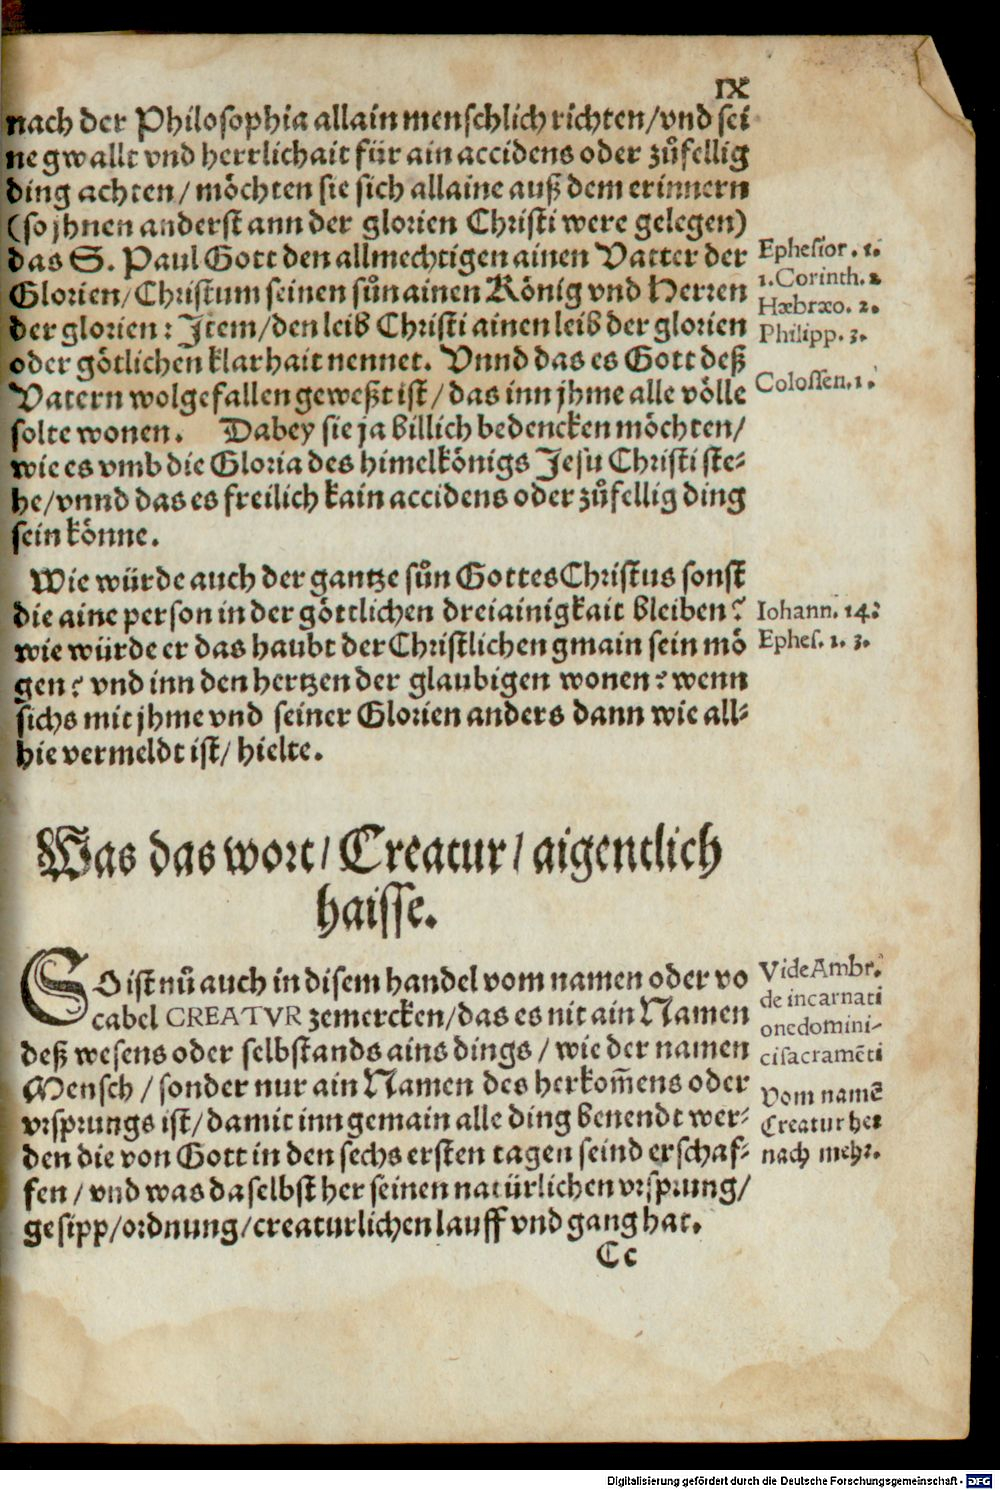 IX
nach der Philosophia allain menschlich richten/vnd sei
ne gwallt vnd herrlichait für ain accidens oder zůfellig
ding achten/ möchten sie sich allaine auß dem erinnern
(so jhnen anderst ann der glorien Christi were gelegen)
das S. Paul Gott den allmechtigen ainen Vatter der
Glorien/ Christum seinen sůn ainen König vnd Herren
der glorien: Item/den leib Christi ainen leib der glorien
oder götlichen klarhait nennet. Vnnd das es Gott deß
Vatern wolgefallen geweßt ist/ das inn jhme alle völle
solte wonen. Dabey sie ja billich bedencken möchten/
wie es vmb die Gloria des himelkönigs Jesu Christi ste-
he/vnnd das es freilich kain accidens oder zůfellig ding
sein könne.
Ephesior. 1.
1. Corinth. 2
Hæbræo. 2.
Philipp. 3.
Colossen. 1.
Wie würde auch der gantze sůn Gottes Christus sonst
die aine person in der göttlichen dreiainigkait bleiben?
wie würde er das haubt der Christlichen gmain sein mö
gen? vnd inn den hertzen der glaubigen wonen? wenn
sichs mit jhme vnd seiner Glorien anders dann wie all-
hie vermeldt ist/ hielte.
Iohann. 14.
Ephes. 1. 3.
Was das wort/ Creatur/ aigentlich
haisse.
SO ist nů auch in disem handel vom namen oder vo
cabel CREATVR zemercken/das es nit ain Namen
deß wesens oder selbstands ains dings/ wie der namen
Mensch/ sonder nur ain Namen des herkom̃ens oder
vrsprungs ist/ damit inn gemain alle ding benendt wer-
den die von Gott in den sechs ersten tagen seind erschaf-
fen/ vnd was daselbst her seinen natürlichen vrsprung/
gesipp/ordnung/creaturlichen lauff vnd gang hat.
Vide Ambr.
de incarnati
one domini-
ci sacramēti
Vom namē
Creatur her
nach mehr.
Cc
Digitalisierung gefördert durch die Deutsche Forschungsgemeinschaft - DFG